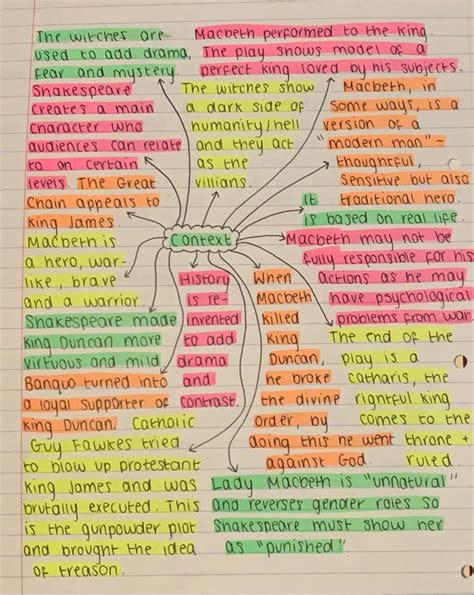 The witches are
used to add drama,
fear and mystery.
Macbeth performed to the king.
The play shows model of a
perfect king loved by his subjects.
Shakespeare
creates a main
character who
audiences can relate
to on certain
levels. The Great
Chain appeals to
King James.
The witches show
a dark side of
humanity/hell
and they act
as the
villians.
Macbeth, in
some ways, is a
version of a
"modern man" -
thoughtful,
sensitive but also
traditional hero.
It
is based on real life.
Context
Macbeth may not be
fully responsible for his
actions as he may
have psychological
problems from war.
Macbeth is
a hero, war-
like, brave
and a warrior.
Shakespeare made
King Duncan more
virtuous and mild
Banquo turned into
a loyal supporter of
King Duncan.
History
is re-
invented
to add
drama
and
contrast.
When
Macbeth
killed
King
Duncan,
he broke
the divine
order, by
doing this he went
against God.
The end of the
play is a
catharis, the
rightful king
comes to the
throne +
ruled.
Catholic
Guy Fawkes tried
to blow up protestant
King James and was
brutally executed. This
is the gunpowder plot
and brought the idea
of treason.
Lady Macbeth is "unnatural"
and reverses gender roles so
Shakespeare must show her
as "punished".